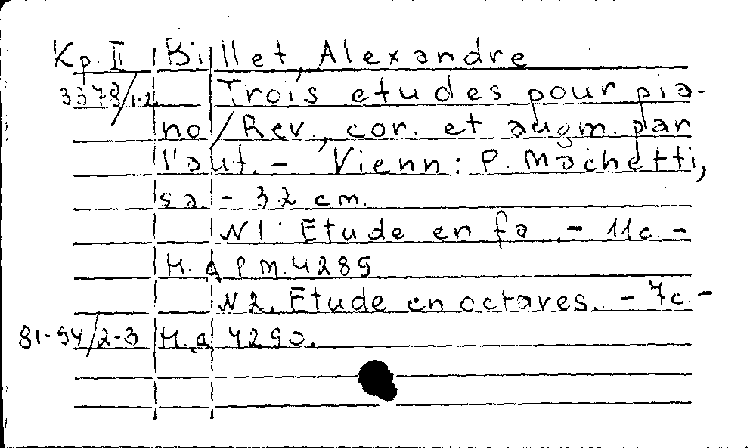 Кр. II Billet, Alexandre
3373/1-2 Trois etudes pour pia-
no / Rev., cor. et augm. par
l'aut. - Vienn: P. Machetti,
sa - 32 cm.
N1. Etude en fa. - 11c -
H. д P.M. 4285
N2. Etude en octaves. - 7c -
81-94/2-3 H.д 4290.